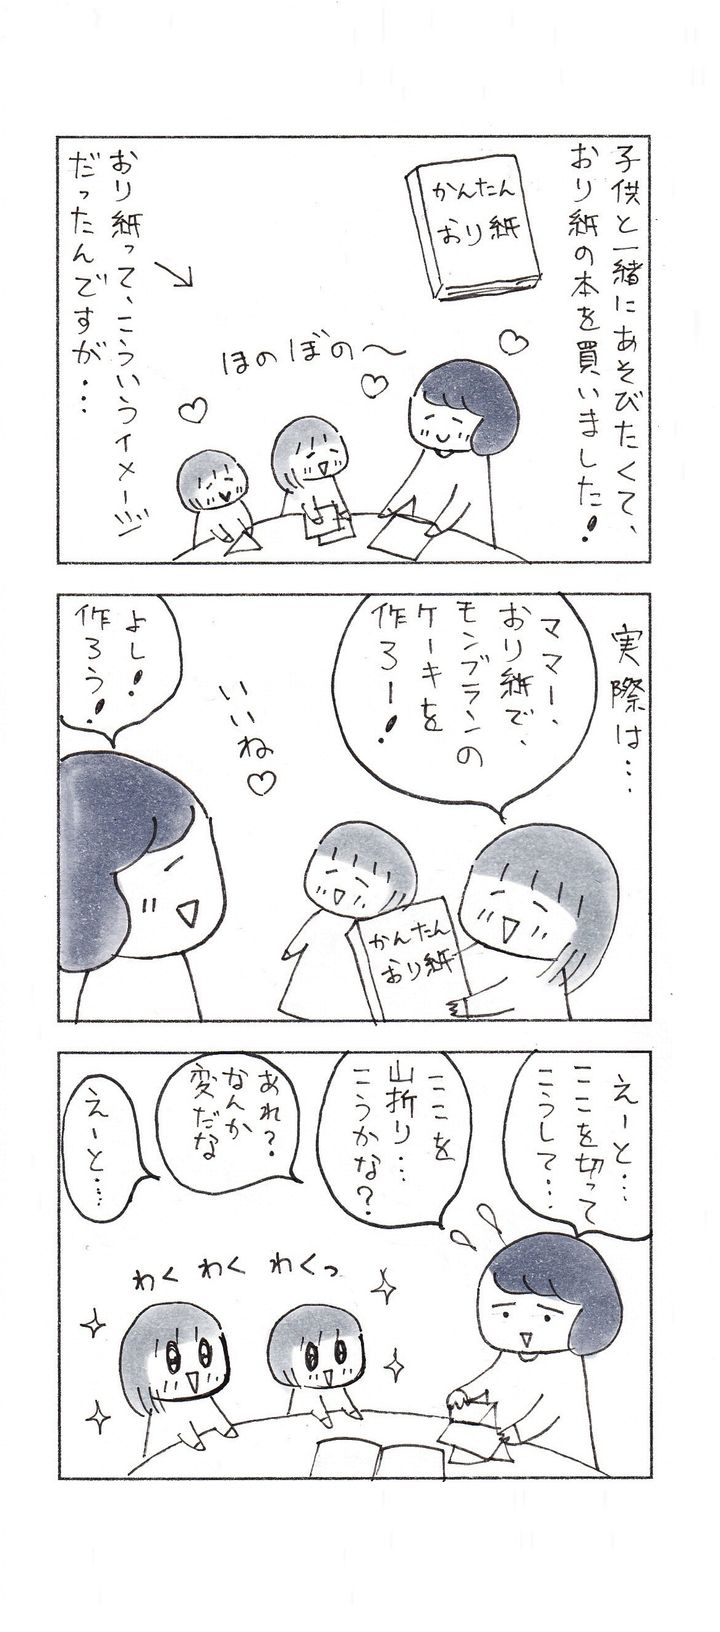 子供と一緒にあそびたくて、
おり紙の本を買いました!
かんたん
おり紙
ほのぼの〜
おり紙って、こういうイメージ
だったんですが・・・
実際は・・・
ママー、
おり紙で、
モンブランの
ケーキを
作ろー!
かんたん
おり紙
いいね♡
よし!
作ろう!
えーと・・・
ここを切って
こうして・・・
ここを
山折り・・・
こうかな?
あれ?
なんか
変だな
えーと・・・
わく わく わくっ